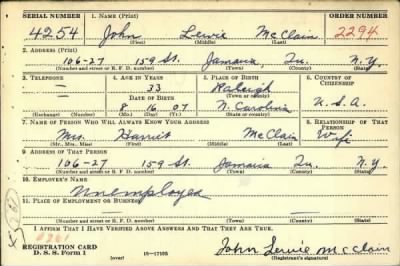 SERIAL NUMBER 1. NAME (Print) ORDER NUMBER
4254 John Lewie McClain 2294
(First) (Middle) (Last)
2. ADDRESS (Print)
106-27 159 St. Jamaica, Qu. N.Y.
(Number and street or R. F. D. number) (Town) (County) (State)
3. TELEPHONE 4. AGE IN YEARS 5. PLACE OF BIRTH 6. COUNTRY OF CITIZENSHIP
— 33 Raleigh
DATE OF BIRTH (Town or county)
— 8 16 07 N. Carolina U.S.A.
(Exchange) (Number) (Mo.) (Day) (Yr.) (State or country)
7. NAME OF PERSON WHO WILL ALWAYS KNOW YOUR ADDRESS 8. RELATIONSHIP OF THAT PERSON
Mrs. Harriet McClain Wife
(Mr., Mrs., Miss) (First) (Middle) (Last)
9. ADDRESS OF THAT PERSON
106-27 159 St. Jamaica Qu. N.Y.
(Number and street or R. F. D. number) (Town) (County) (State)
10. EMPLOYER'S NAME
Unemployed
11. PLACE OF EMPLOYMENT OR BUSINESS
(Number and street or R. F. D. number) (Town) (County) (State)
I AFFIRM THAT I HAVE VERIFIED ABOVE ANSWERS AND THAT THEY ARE TRUE.
REGISTRATION CARD
D. S. S. Form 1 (over) 16—17105 John Lewie McClain
(Registrant's signature)